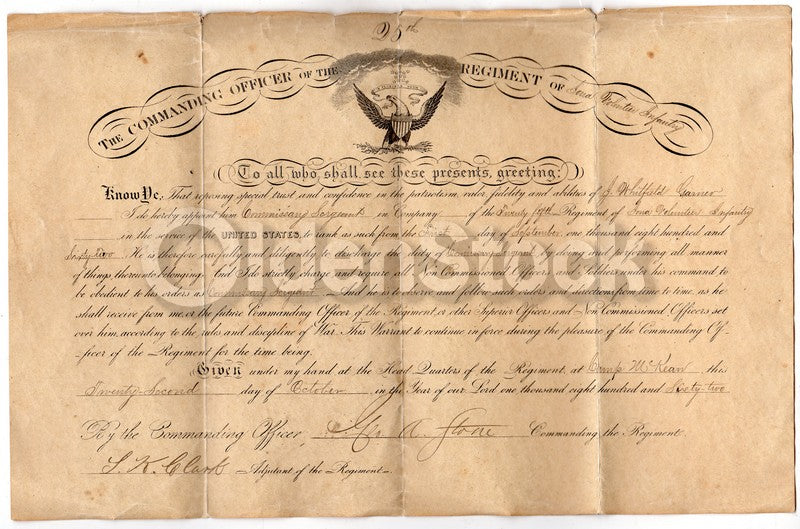 25th
THE COMMANDING OFFICER OF THE REGIMENT OF Iowa Volunteer Infantry
To all who shall see these presents, greeting:
Know Ye, That reposing special trust and confidence in the patriotism, valor, fidelity and abilities of J. Whitfield Garner
I do hereby appoint him Commissary Sergeant in Company of the Twenty fifth Regiment of Iowa Volunteer Infantry
in the service of the UNITED STATES, to rank as such from the first day of September one thousand eight hundred and
Sixty-two He is therefore carefully and diligently to discharge the duty of Commissary Sergeant by doing and performing all manner
of things thereunto belonging. And I do strictly charge and require all Non Commissioned Officers and Soldiers under his command to
be obedient to his orders as Commissary Sergeant And he is to observe and follow such orders and directions from time to time, as he
shall receive from me, or the future Commanding Officer of the Regiment, or other Superior Officers and Non Commissioned Officers set
over him, according to the rules and discipline of War. This Warrant to continue in force during the pleasure of the Commanding Of-
ficer of the Regiment for the time being.
Given under my hand at the Head Quarters of the Regiment, at Camp McKean this
Twenty-Second day of October in the Year of our Lord one thousand eight hundred and Sixty-two
By the Commanding Officer, Geo. A. Stone Commanding the Regiment.
S. K. Clark Adjutant of the Regiment.